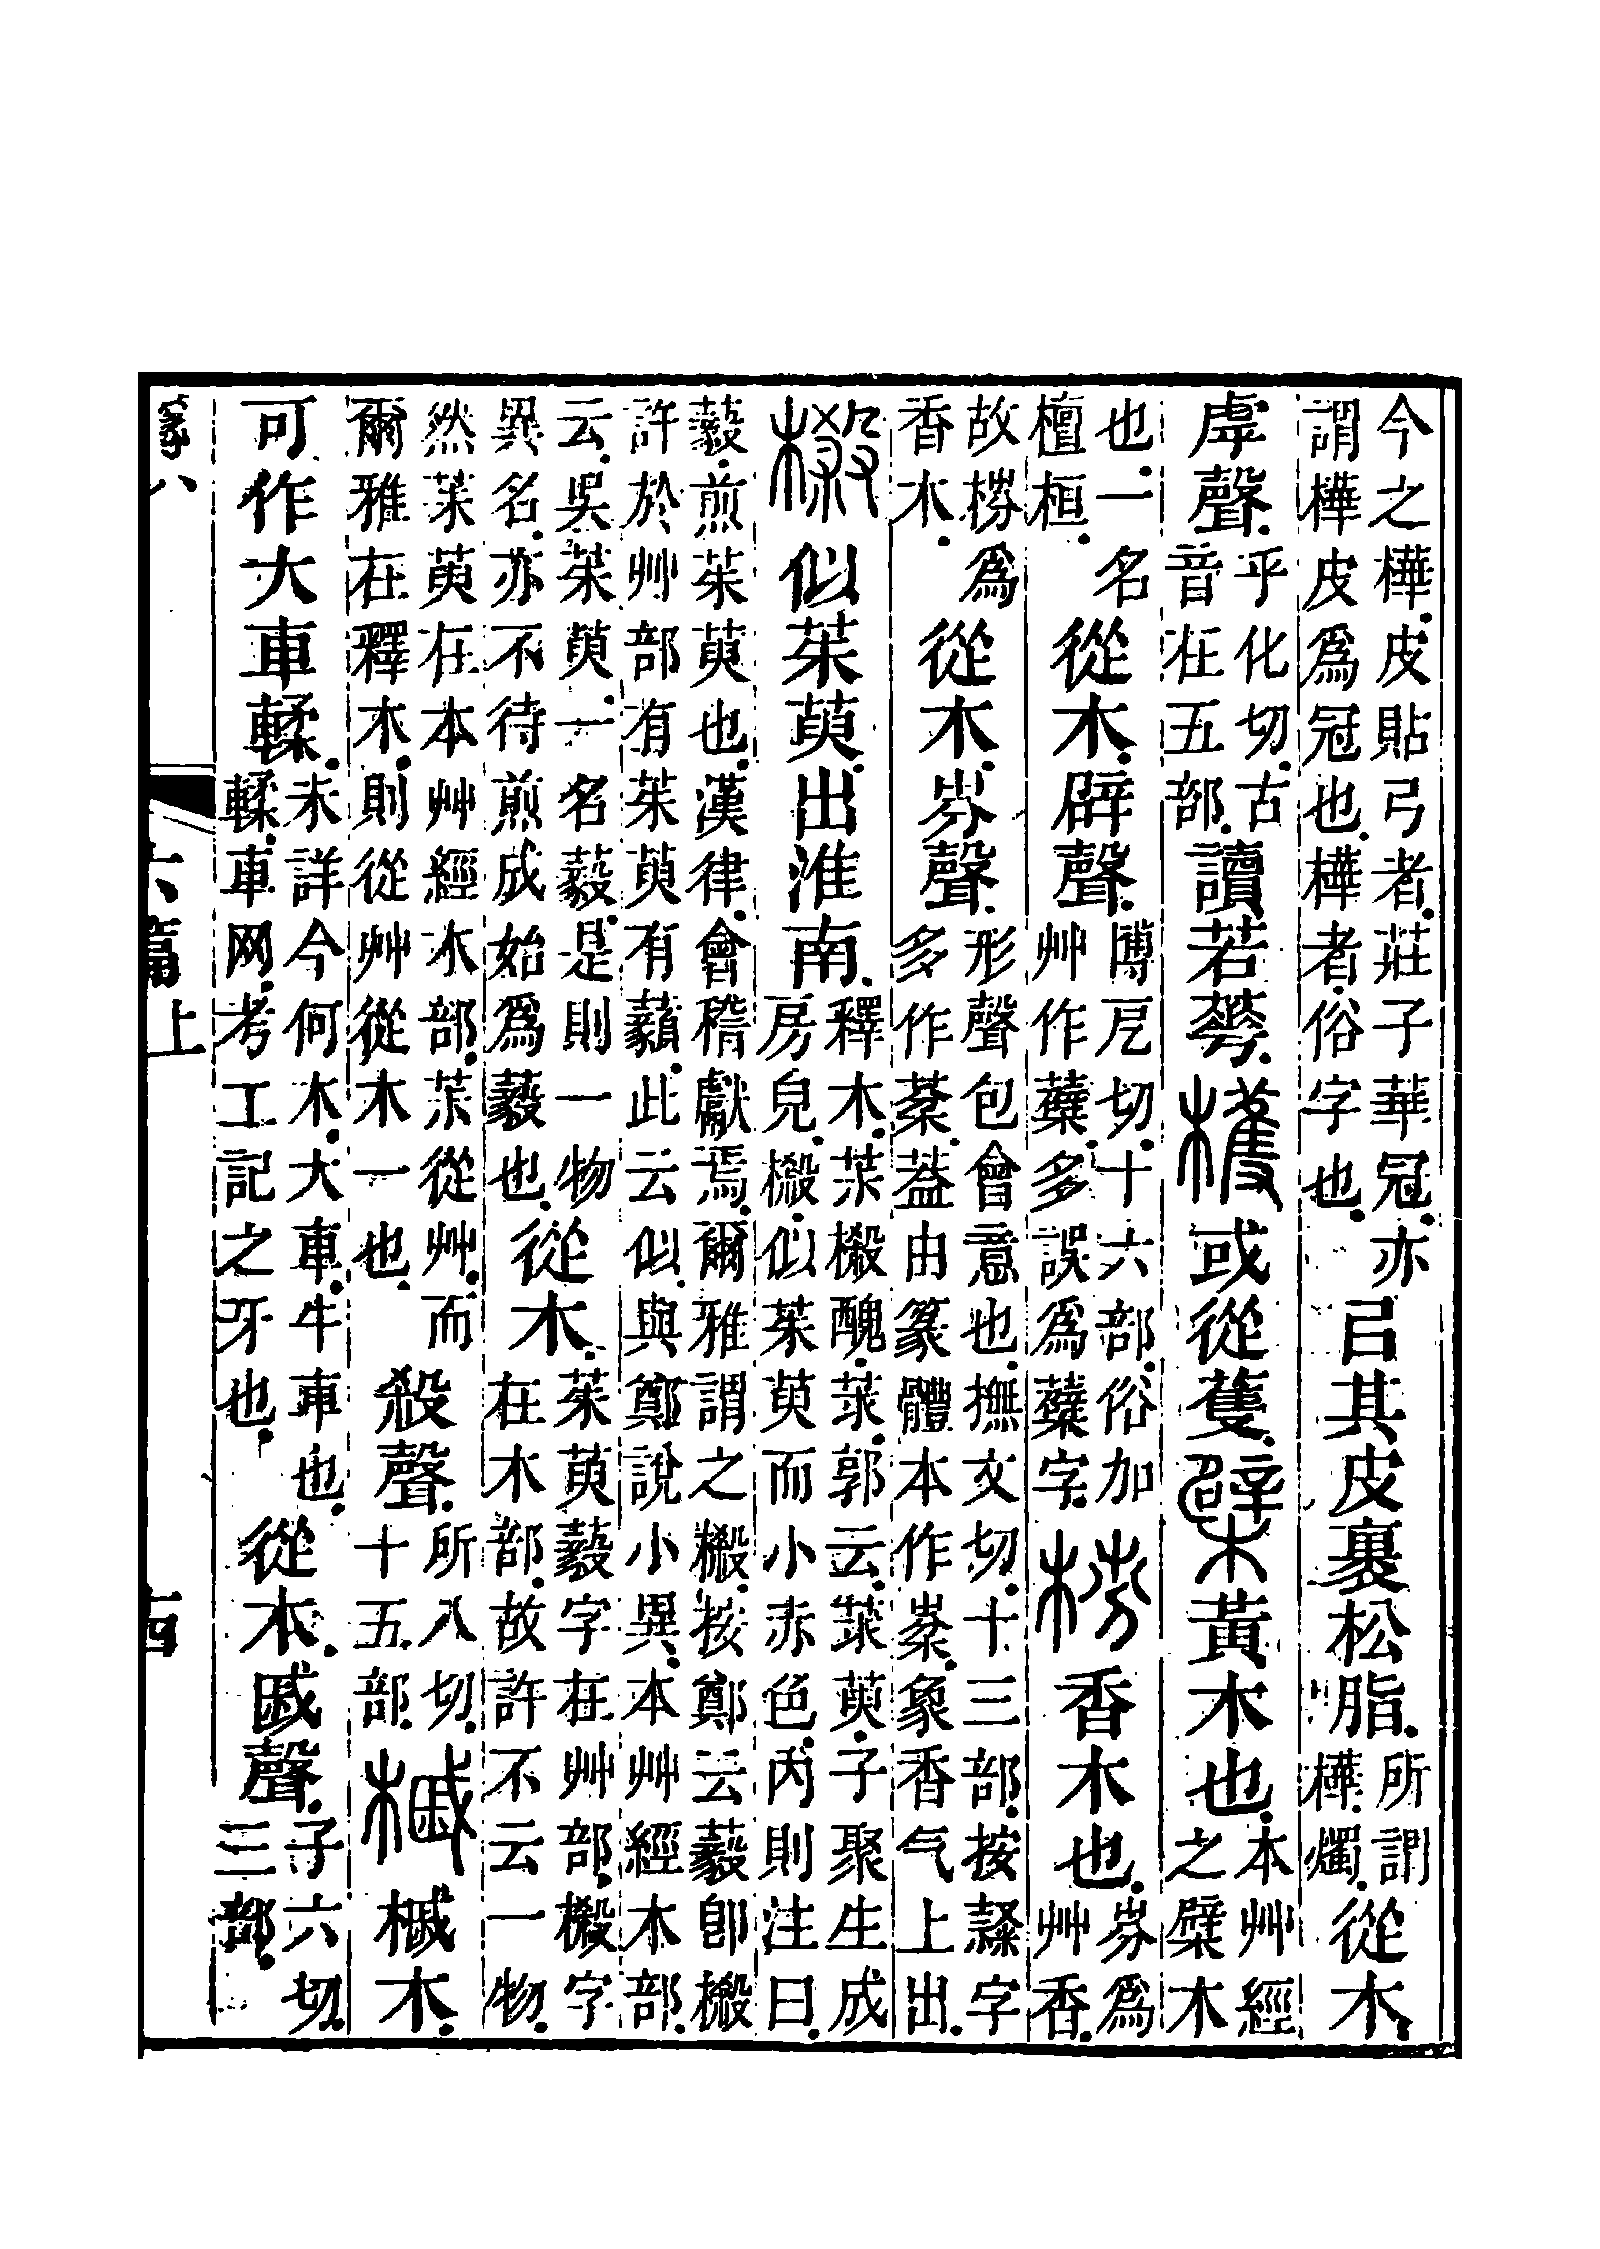 今之樺皮貼弓者。莊子華冠。亦
謂樺皮爲冠也。樺者。俗字也。
㠯其皮裹松脂。
所謂
樺燭。
從木。
虖聲。
乎化切。古
音在五部。
讀若華。檴或從蒦。檗黃木也。
本艸經
之檗木
也。一名
檀桓。
從木。辟聲。
博戹切。十六部。俗加
艸作蘗。多誤爲蘖字。
梤香木也。
芬爲
艸香。
故梤爲
香木。
從木。岎聲。
形聲包會意也。撫文切。十三部。按字
多作棻。葢由篆體本作。象香气上出。
榝似茱萸。出淮南。
釋木。茮樧醜莍。郭云。莍萸。子聚生成
房皃。樧似茱萸而小。赤色。內則注曰。
藙。煎茱萸也。漢律。會稽獻焉。爾雅謂之樧。按鄭云藙卽樧
許於艸部有茱萸。有藙。此云似。與鄭說小異。本艸經木部
云。吳茱萸。一名藙。是則一物
異名。亦不待煎成始爲藙也。
從木。
茱萸藙字在艸部。樧字
在木部。故許不云一物。
然茱萸在本艸經木部。茱從艸。而
爾雅在釋木。則從艸從木一也。
殺聲。
所八切。
十五部。
槭槭木。
可作大車輮。
未詳今何木。大車。牛車也。
輮。車网。考工記之牙也。
從木。戚聲。
子六切。
三部。
六篇上